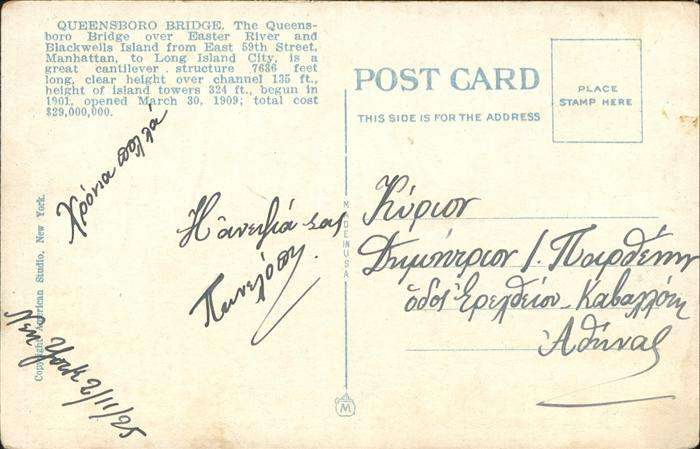 QUEENSBORO BRIDGE. The Queens-
boro Bridge over Easter River and
Blackwells Island from East 59th Street,
Manhattan, to Long Island City, is a
great cantilever structure 7636 feet
long, clear height over channel 135 ft.,
height of island towers 324 ft., begun in
1901, opened March 30, 1909; total cost
$29,000,000.
Χρόνια πολλά
Η ανειψιά σας
Πηνελόπη.
Νέα Υόρκη
POST CARD
THIS SIDE IS FOR THE ADDRESS
PLACE
STAMP HERE
Κύριον
Δημήτριον Ι. Παρθένην
ὁδος Ἐρεχθείου - Καβαλλότη
Ἀθήνας
MADE IN USA
M
American Studio, New York.